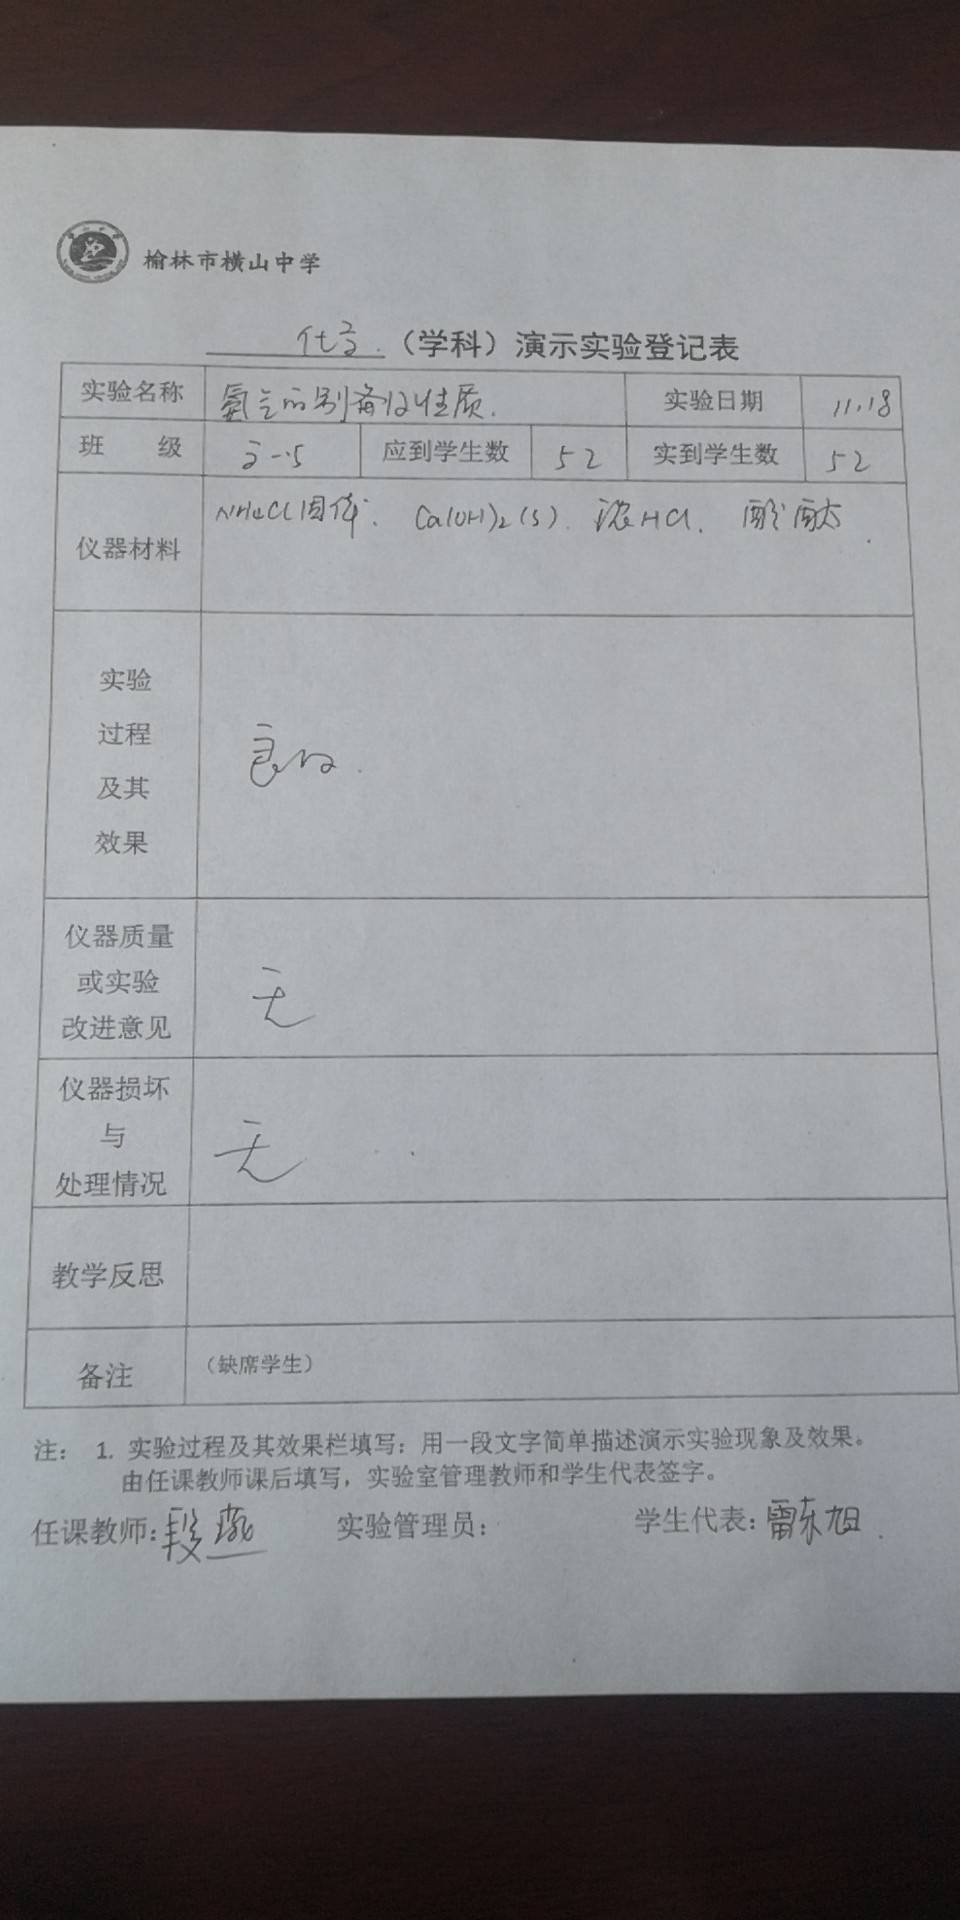 榆林市横山中学
化学（学科）演示实验登记表
实验名称 氨气的制备及性质. 实验日期 11.18
班 级 高一.5 应到学生数 52 实到学生数 52
仪器材料 NH4Cl固体. Ca(OH)2(s). 浓HCl. 酚酞.
实验
过程
及其
效果
良好.
仪器质量
或实验
改进意见
无
仪器损坏
与
处理情况
无
教学反思
备注 （缺席学生）
注： 1. 实验过程及其效果栏填写：用一段文字简单描述演示实验现象及效果。
由任课教师课后填写，实验室管理教师和学生代表签字。
任课教师:段燕 实验管理员: 学生代表:雷东旭.